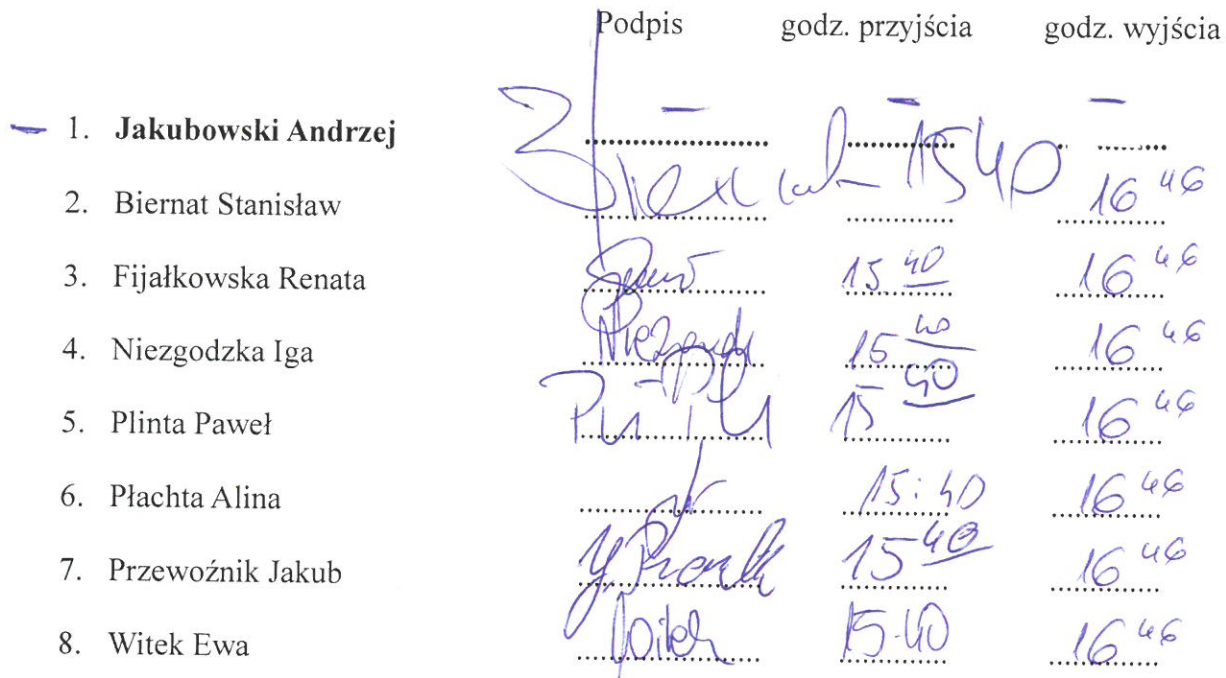 Podpis godz. przyjścia godz. wyjścia
– 1. Jakubowski Andrzej – – –
2. Biernat Stanisław 15 40 16 46
3. Fijałkowska Renata 15 40 16 46
4. Niezgodzka Iga 15 40 16 46
5. Plinta Paweł 15 40 16 46
6. Płachta Alina 15:40 16 46
7. Przewoźnik Jakub 15 40 16 46
8. Witek Ewa Witek 15.40 16 46